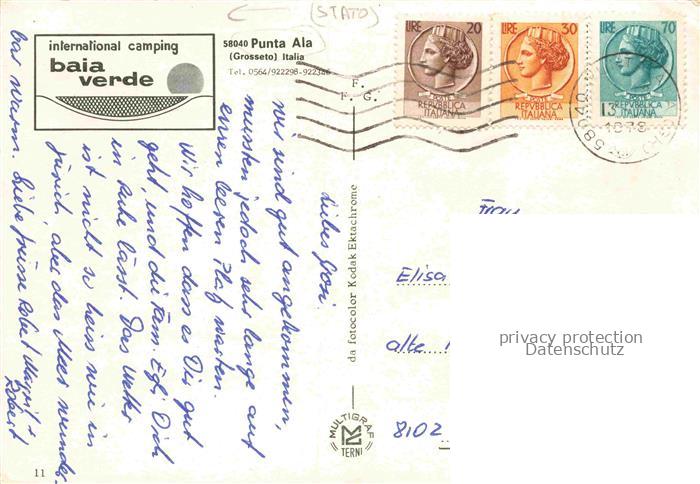 (STATO)
international camping
baia
verde
58040 Punta Ala
(Grosseto) Italia
Tel. 0564/922298-922346
F.
F. G.
LIRE 20
REPVBBLICA
ITALIANA
LIRE 30
REPVBBLICA
ITALIANA
LIRE 70
REPVBBLICA
ITALIANA
58040
13
1978
Liebes Gosi.
Wir sind gut angekommen,
mussten jedoch sehr lange auf
einen leeren Platz warten.
Wir hoffen dass es Dir gut
geht, und die Fam. Egli Dich
in Ruhe lässt. Das Wetter
ist nicht so heiss wie in
Zürich, aber das Meer wunder-
bar warm. Liebe Grüsse Robert Margrit +
Robert
da fotocolor Kodak Ektachrome
MULTIGRAF
TERNI
Frau
Elisa
alte
8102
privacy protection
Datenschutz
11